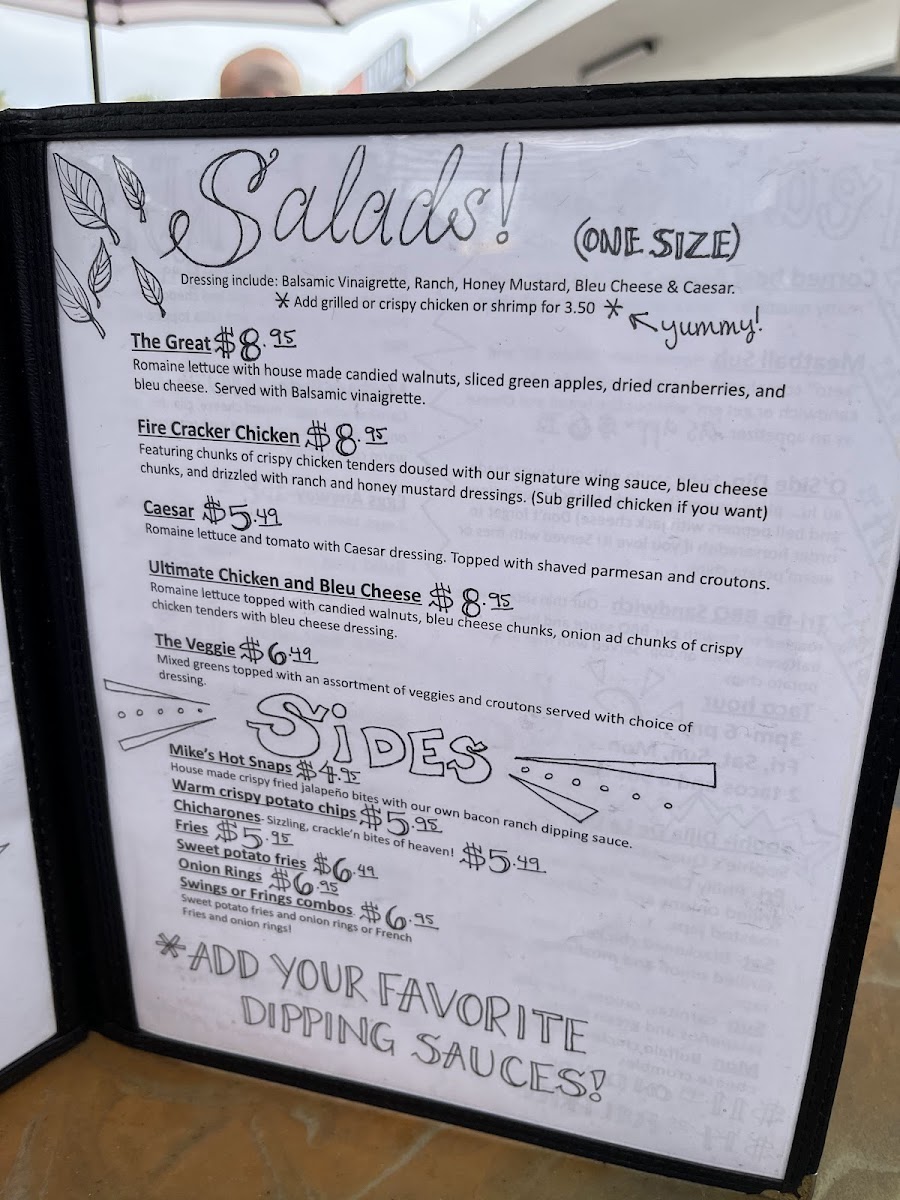 Salads!
(ONE SIZE)
Dressing include: Balsamic Vinaigrette, Ranch, Honey Mustard, Bleu Cheese & Caesar.
* Add grilled or crispy chicken or shrimp for 3.50 *
yummy!
The Great $8.95
Romaine lettuce with house made candied walnuts, sliced green apples, dried cranberries, and
bleu cheese. Served with Balsamic vinaigrette.
Fire Cracker Chicken $8.95
Featuring chunks of crispy chicken tenders doused with our signature wing sauce, bleu cheese
chunks, and drizzled with ranch and honey mustard dressings. (Sub grilled chicken if you want)
Caesar $5.49
Romaine lettuce and tomato with Caesar dressing. Topped with shaved parmesan and croutons.
Ultimate Chicken and Bleu Cheese $8.95
Romaine lettuce topped with candied walnuts, bleu cheese chunks, onion ad chunks of crispy
chicken tenders with bleu cheese dressing.
The Veggie $6.49
Mixed greens topped with an assortment of veggies and croutons served with choice of
dressing.
SiDES
Mike's Hot Snaps $4.95
House made crispy fried jalapeño bites with our own bacon ranch dipping sauce.
Warm crispy potato chips $5.95
Chicharones- Sizzling, crackle'n bites of heaven! $5.49
Fries $5.95
Sweet potato fries $6.49
Onion Rings $6.95
Swings or Frings combos $6.95
Sweet potato fries and onion rings or French
Fries and onion rings!
*ADD YOUR FAVORITE
DIPPING SAUCES!